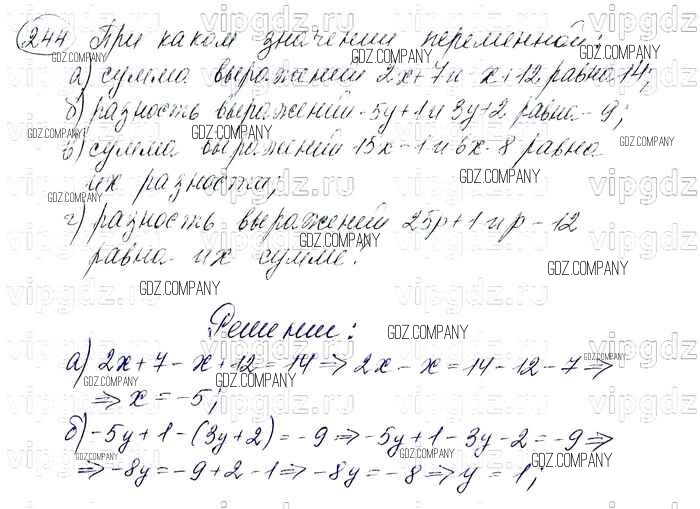 244 При каком значении переменной:
а) сумма выражений 2x+7 и -x+12 равна 14;
б) разность выражений -5y+1 и 3y+2 равна -9;
в) сумма выражений 15x-1 и 6x-8 равна
их разности;
г) разность выражений 25p+1 и p-12
равна их сумме?
Решении:
а) 2x+7-x+12=14 ⇒ 2x-x=14-12-7 ⇒
⇒ x=-5;
б) -5y+1-(3y+2)=-9 ⇒ -5y+1-3y-2=-9 ⇒
⇒ -8y=-9+2-1 ⇒ -8y=-8 ⇒ y=1;